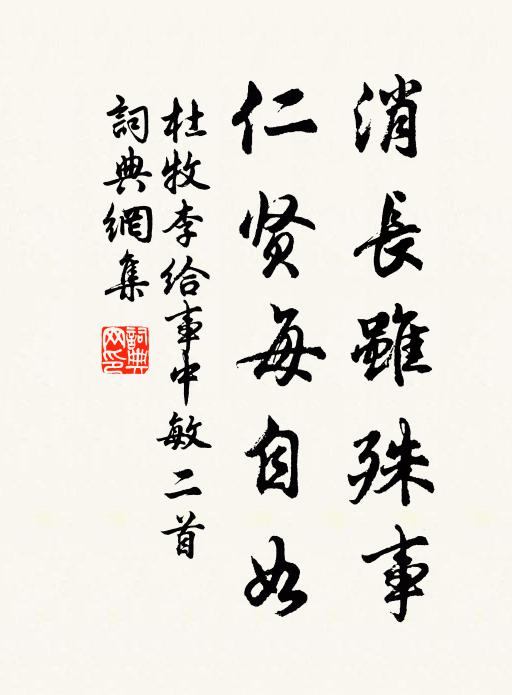 消長雖殊事
仁贤每自如
杜牧李给事中敏二首
詞典網集
詞典網印